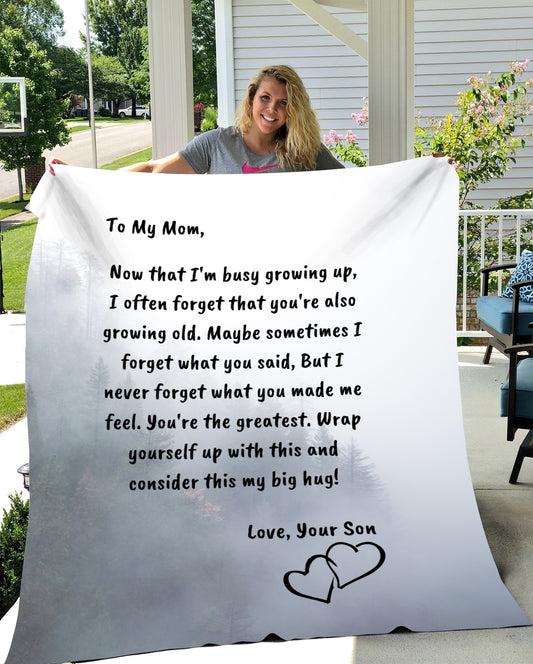 To My Mom,
Now that I'm busy growing up,
I often forget that you're also
growing old. Maybe sometimes I
forget what you said, But I
never forget what you made me
feel. You're the greatest. Wrap
yourself up with this and
consider this my big hug!
Love, Your Son